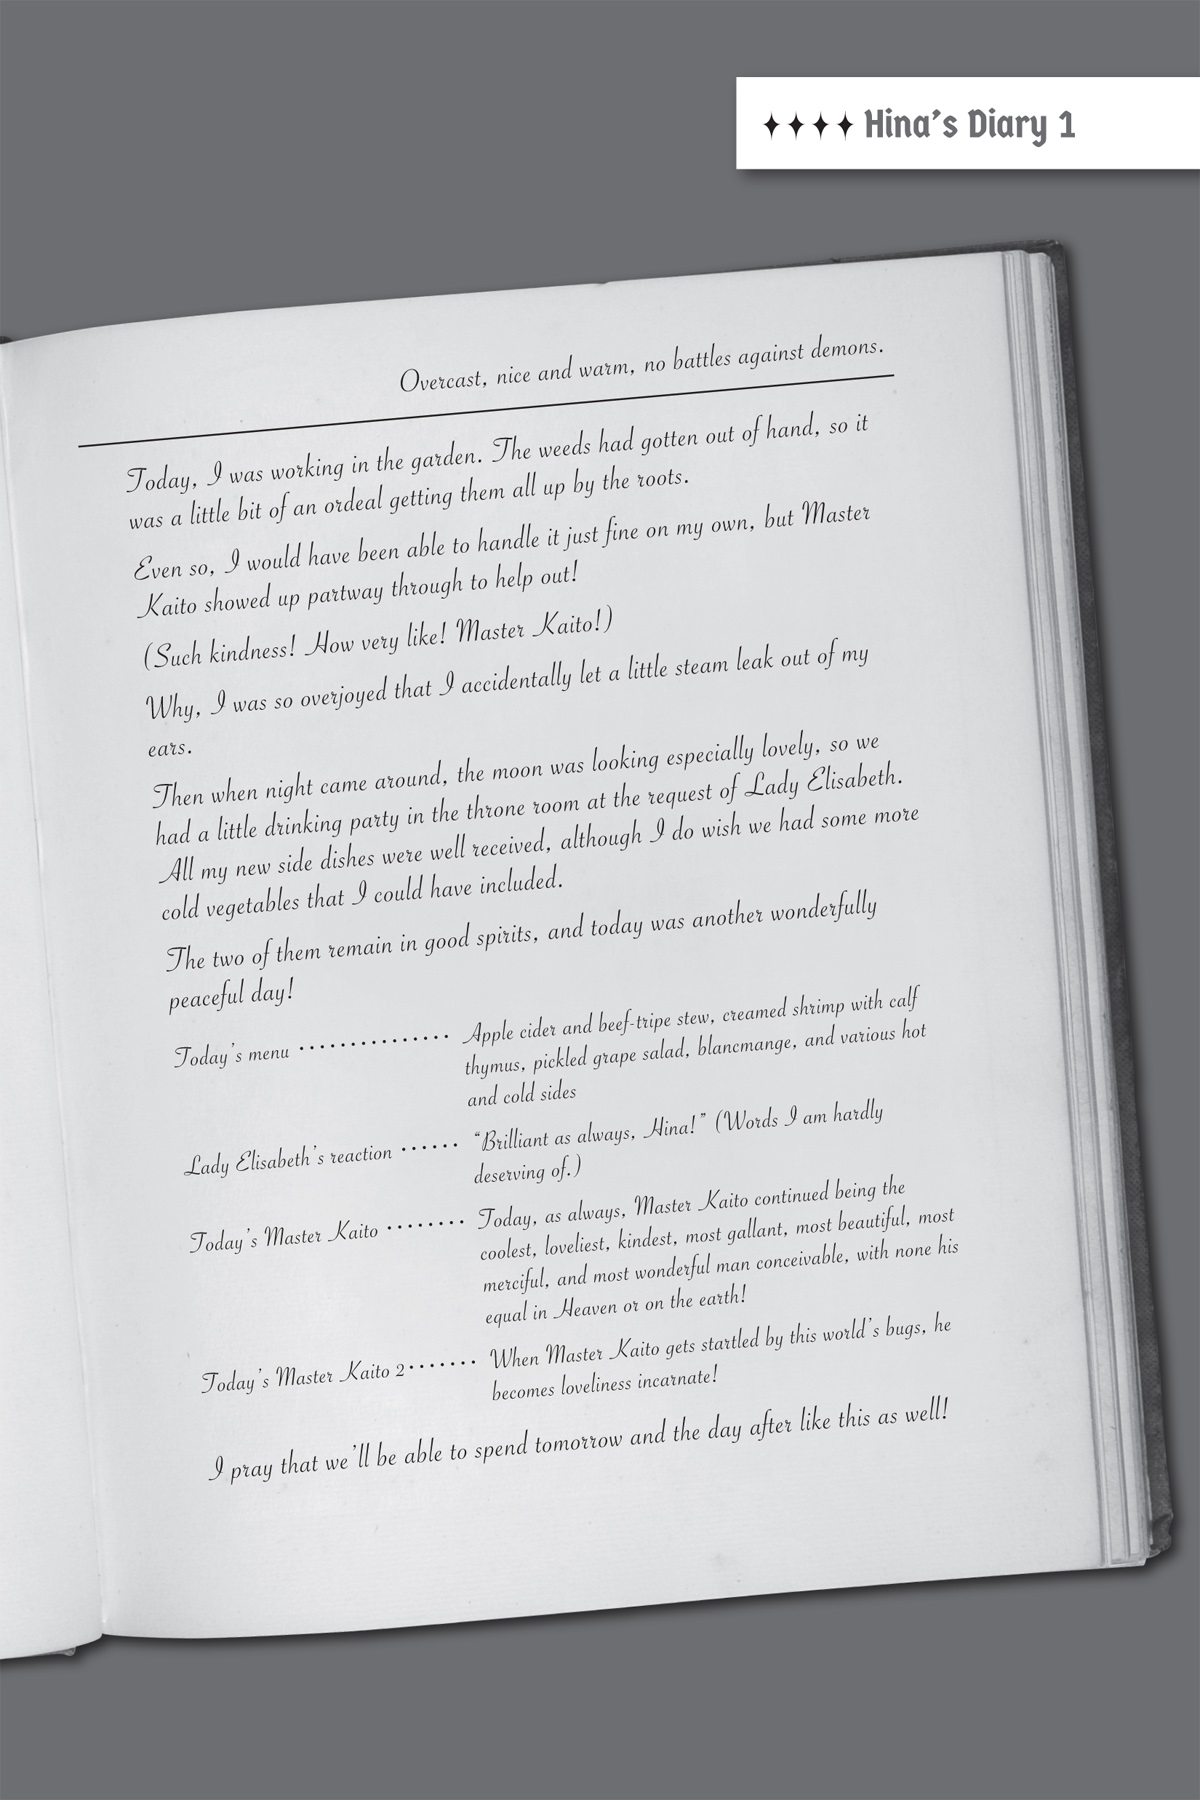 Hina's Diary 1
Overcast, nice and warm, no battles against demons.
Today, I was working in the garden. The weeds had gotten out of hand, so it
was a little bit of an ordeal getting them all up by the roots.
Even so, I would have been able to handle it just fine on my own, but Master
Kaito showed up partway through to help out!
(Such kindness! How very like! Master Kaito!)
Why, I was so overjoyed that I accidentally let a little steam leak out of my
ears.
Then when night came around, the moon was looking especially lovely, so we
had a little drinking party in the throne room at the request of Lady Elisabeth.
All my new side dishes were well received, although I do wish we had some more
cold vegetables that I could have included.
The two of them remain in good spirits, and today was another wonderfully
peaceful day!
Today's menu ··············· Apple cider and beef-tripe stew, creamed shrimp with calf
thymus, pickled grape salad, blancmange, and various hot
and cold sides
Lady Elisabeth's reaction ······ “Brilliant as always, Hina!” (Words I am hardly
deserving of.)
Today's Master Kaito ········ Today, as always, Master Kaito continued being the
coolest, loveliest, kindest, most gallant, most beautiful, most
merciful, and most wonderful man conceivable, with none his
equal in Heaven or on the earth!
Today's Master Kaito 2 ······· When Master Kaito gets startled by this world's bugs, he
becomes loveliness incarnate!
I pray that we'll be able to spend tomorrow and the day after like this as well!